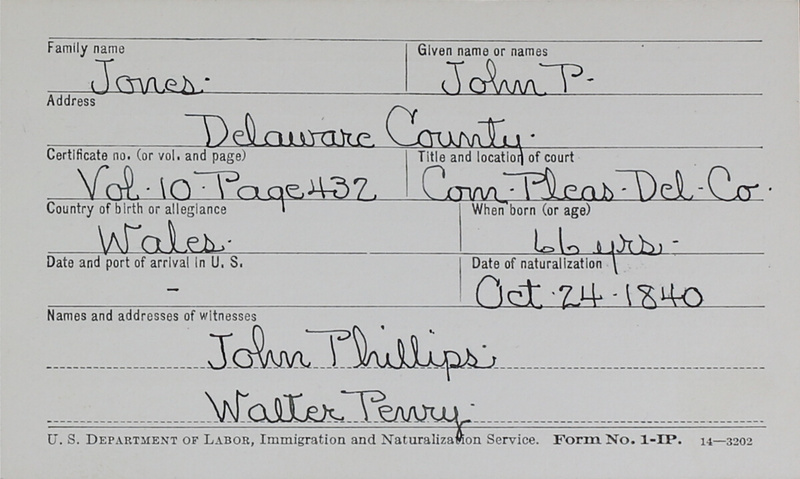 Family name Given name or names
Jones. John P.
Address
Delaware County.
Certificate no. (or vol. and page) Title and location of court
Vol. 10. Page 432 Com. Pleas. Del. Co.
Country of birth or allegiance When born (or age)
Wales. 66 yrs.
Date and port of arrival in U. S. Date of naturalization
– Oct. 24. 1840
Names and addresses of witnesses
John Phillips.
Walter Penry.
U. S. DEPARTMENT OF LABOR, Immigration and Naturalization Service. Form No. 1-IP. 14—3202